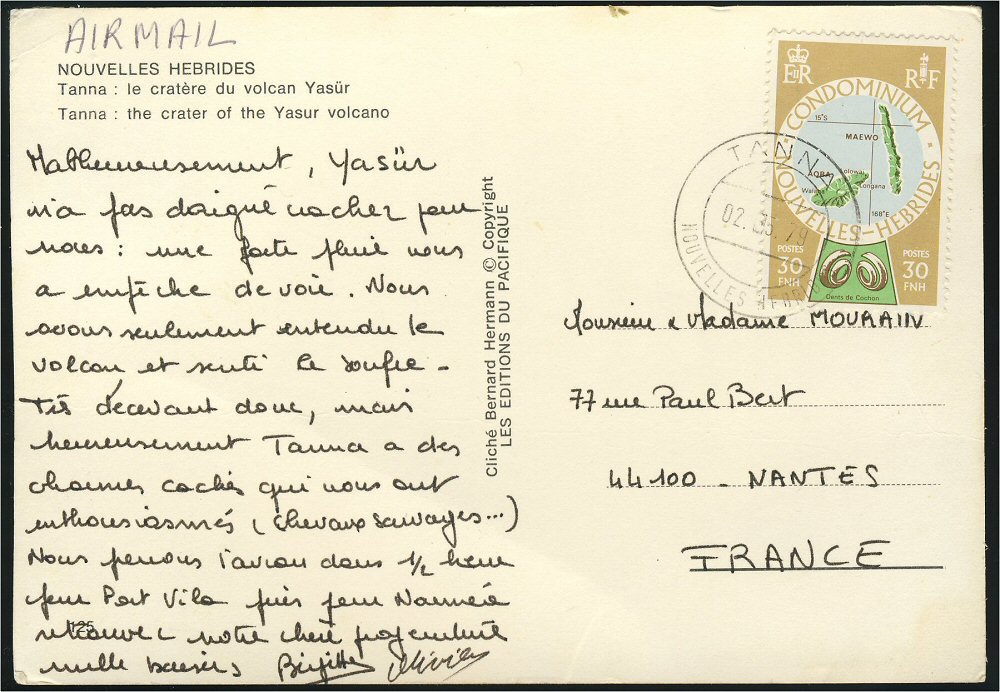 AIRMAIL
NOUVELLES HEBRIDES
Tanna : le cratère du volcan Yasür
Tanna : the crater of the Yasur volcano
Malheureusement, Yasür
n'a pas daigné cracher pour
nous : une forte pluie nous
a empêché de voir. Nous
avons seulement entendu le
volcan et senti le soufre -
Très décevant donc, mais
heureusement Tanna a des
charmes cachés qui nous ont
enthousiasmés (chevaux sauvages...)
Nous prenons l'avion dans 1/2 heure
pour Port Vila puis pour Nouméa
retrouver notre chère progéniture
mille baisers Brigitte Olivier
125
Cliché Bernard Hermann © Copyright
LES EDITIONS DU PACIFIQUE
EIIR
RF
CONDOMINIUM
NOUVELLES-HEBRIDES
15°S
MAEWO
AOBA
Lolowai
Longana
168°E
POSTES
30
FNH
POSTES
30
FNH
Dents de Cochon
TANNA
02. 05. 79
NOUVELLES HEBRIDES
Monsieur & Madame MOURAIN
77 rue Paul Bert
44100 - NANTES
FRANCE